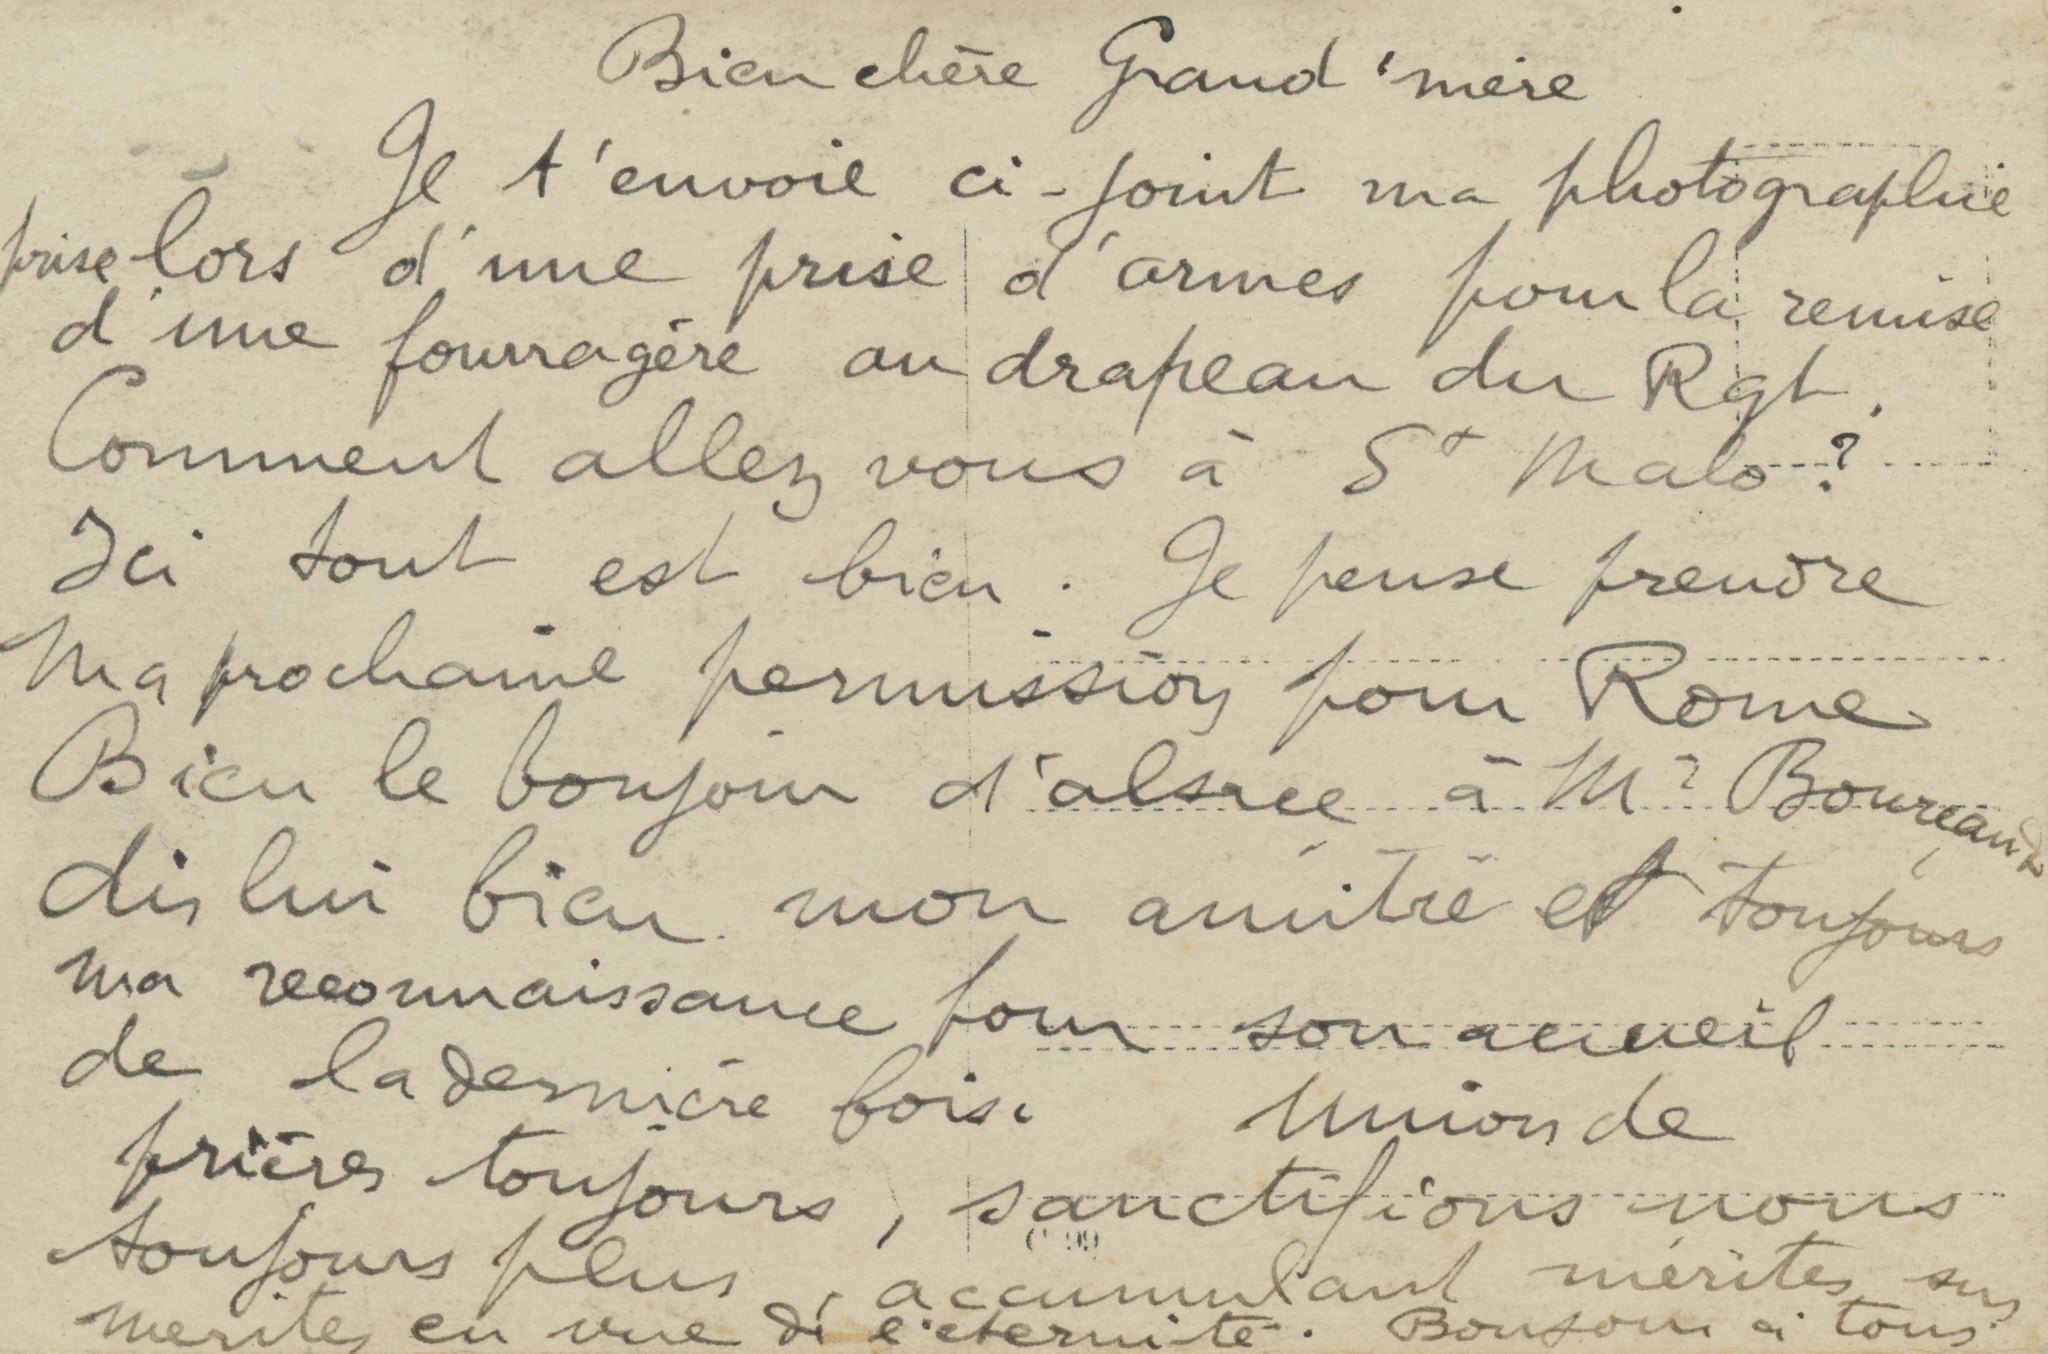 Bien chère Grand'mère
Je t'envoie ci-joint ma photographie
prise lors d'une prise d'armes pour la remise
d'une fourragère au drapeau du Rgt.
Comment allez vous à St Malo ?
Ici tout est bien. Je pense prendre
Ma prochaine permission pour Rome
Bien le bonjour d'alsace à Mr Boureau
dis lui bien mon amitié et toujours
ma reconnaissance pour son accueil
de la dernière fois. Union de
prières toujours, sanctifions nous
toujours plus, accumulant mérites sur
merites en vue de l'eternité. Bonjour à tous